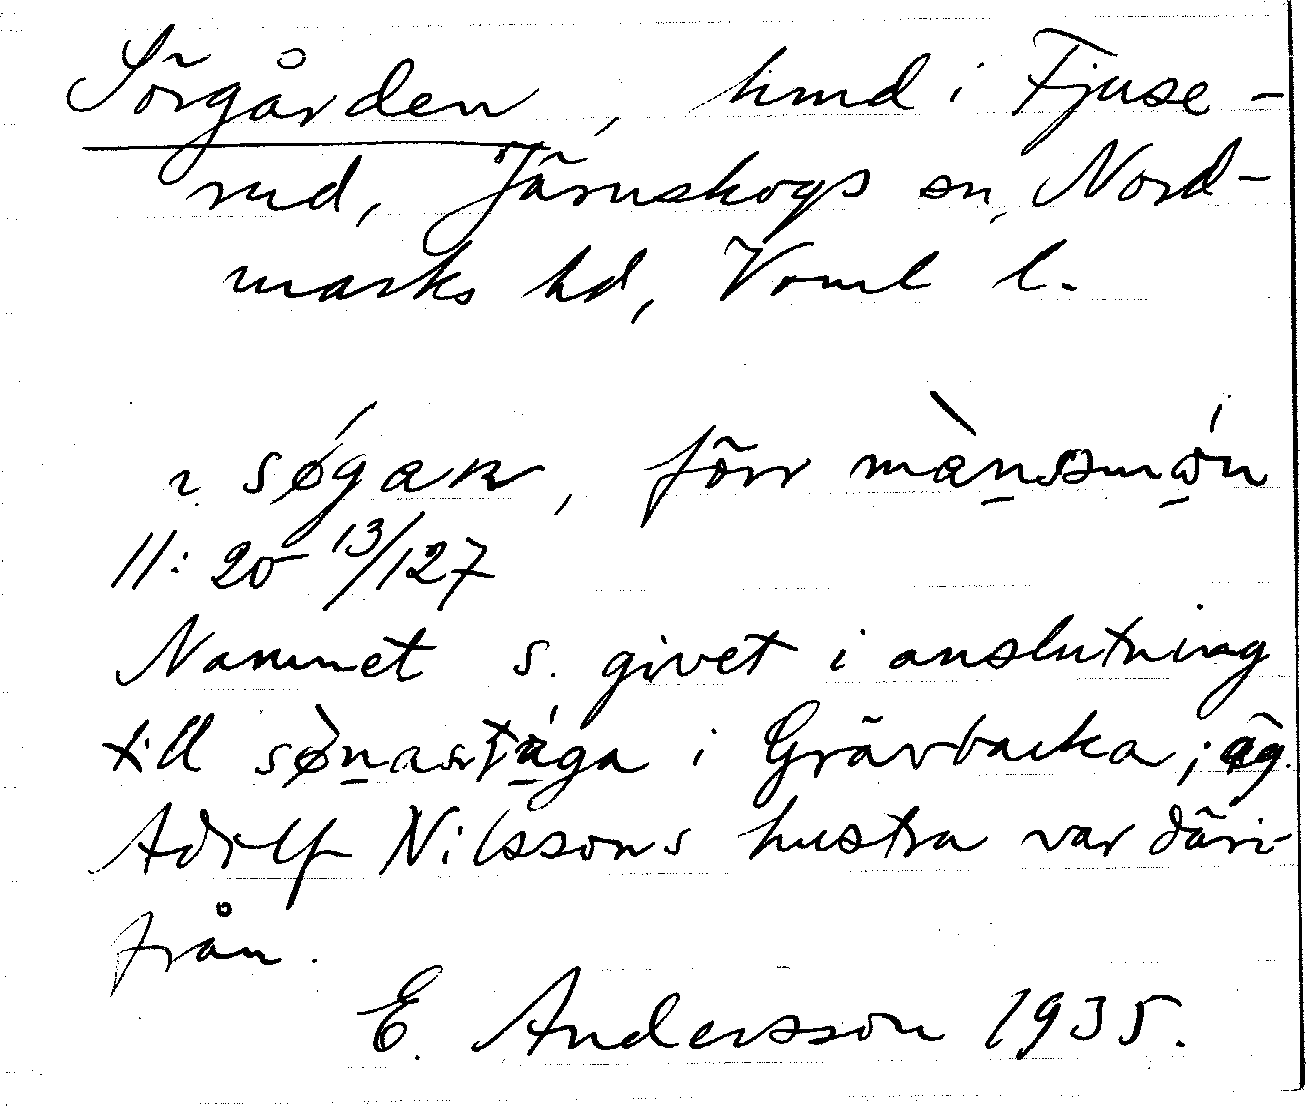 Sörgården, hmd i Fjuse-
rud, Järnskogs sn, Nord-
marks hd, Vrml l.
ɿ søgaɴ, förr
11:20 13/127
Namnet s. givet i anslutning
till i Grävbacka; äg.
Adolf Nilssons hustru var däri-
från.
E. Andersson 1935.